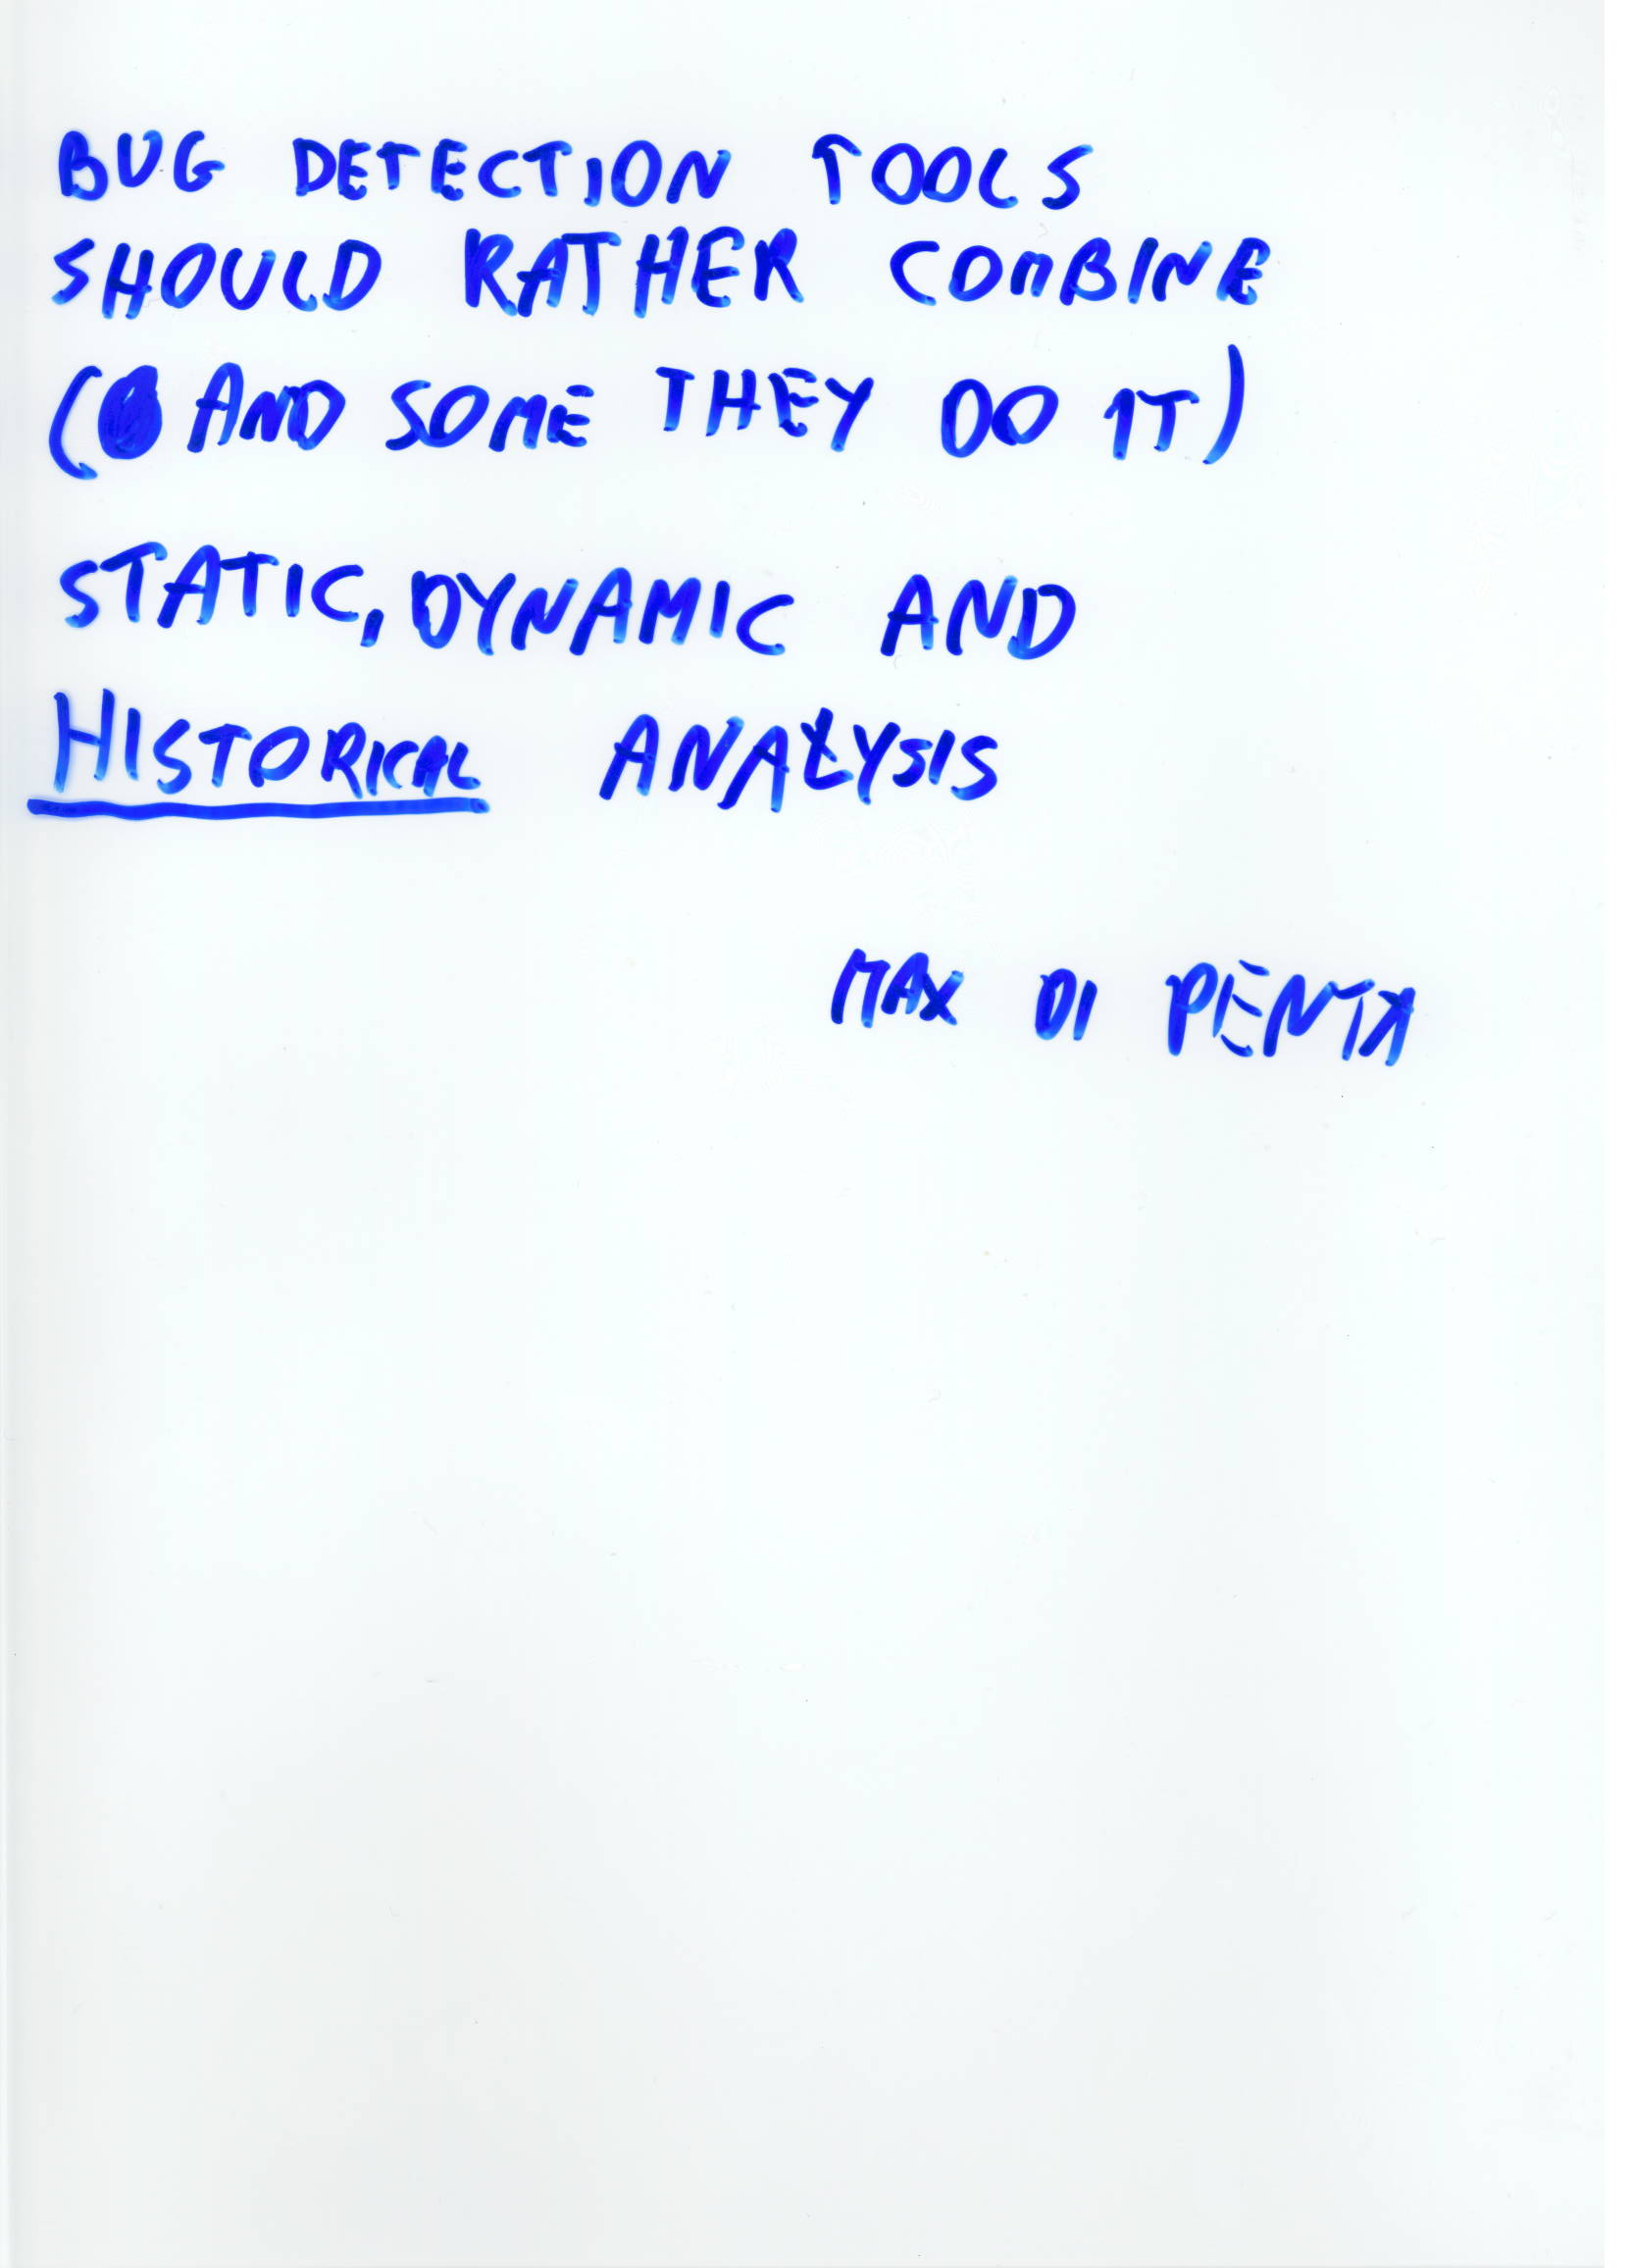 BUG DETECTION TOOLS
SHOULD RATHER COMBINE
(AND SOME THEY DO IT)
STATIC, DYNAMIC AND
HISTORICAL ANALYSIS
MAX DI PENTA